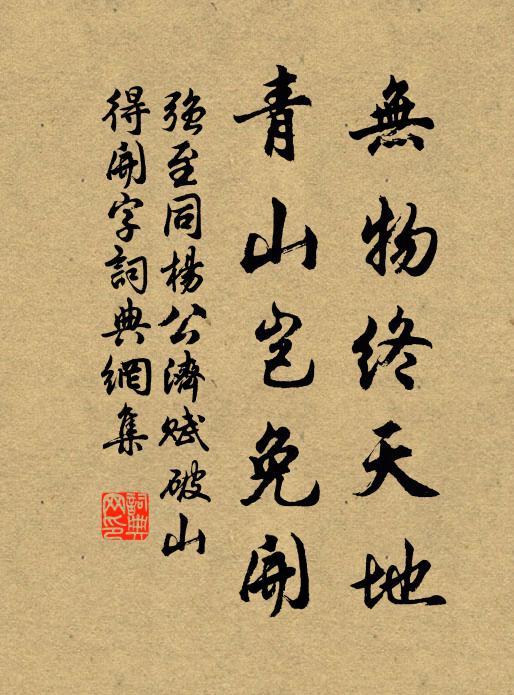 無物終天地
青山岂免開
强至同楊公濟賦破山
得開字詞典網集
詞典网印